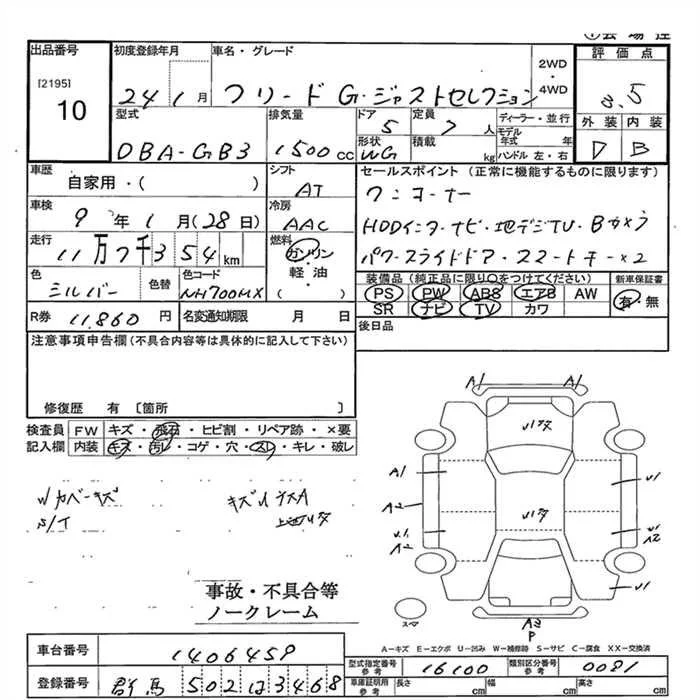 出品番号 初度登録年月 車名・グレード 2WD・4WD 評価点
[2195]
10
24 1月 フリード G・ジャストセレクション 3.5
型式 排気量 ドア 定員 ディーラー・並行 外装 内装
DBA-GB3 1500cc 5 7人 モデル年式 年 D B
形状 積載 ハンドル 左・右
WG kg
車歴 シフト セールスポイント(正常に機能するものに限ります)
自家用・( ) AT ワンオーナー
車検 冷房
9年1月(28日) AAC HDDインターナビ・地デジTV・Bカメラ
走行 燃料
11万7千354km ガソリン パワースライドドア・スマートキー×2
軽油・( )
色 色替 色コード 装備品(純正品に限り○をつけてください) 新車保証書
シルバー NH700MX PS PW ABS エアB AW 有・無
SR ナビ TV カワ
R券 11,860円 名変通知期限 月 日 後日品
注意事項申告欄(不具合内容等は具体的に記入して下さい)
修復歴 有 〔箇所 〕
検査員 FW キズ・飛石・ヒビ割・リペア跡・×要
記入欄 内装 キズ・汚レ・コゲ・穴・スレ・キレ・破レ
A1 A1
A1
A2
A2
A2
A3
P
スマ
事故・不具合等
ノークレーム
A-キズ E-エクボ U-凹み W-補修跡 S-サビ C-腐食 XX-交換済
車台番号 1406459 型式指定番号 参考 16100 類別区分番号 参考 0081
登録番号 群馬 502 は 3468 車庫証明用 参考 長さ cm 幅 cm 高さ cm